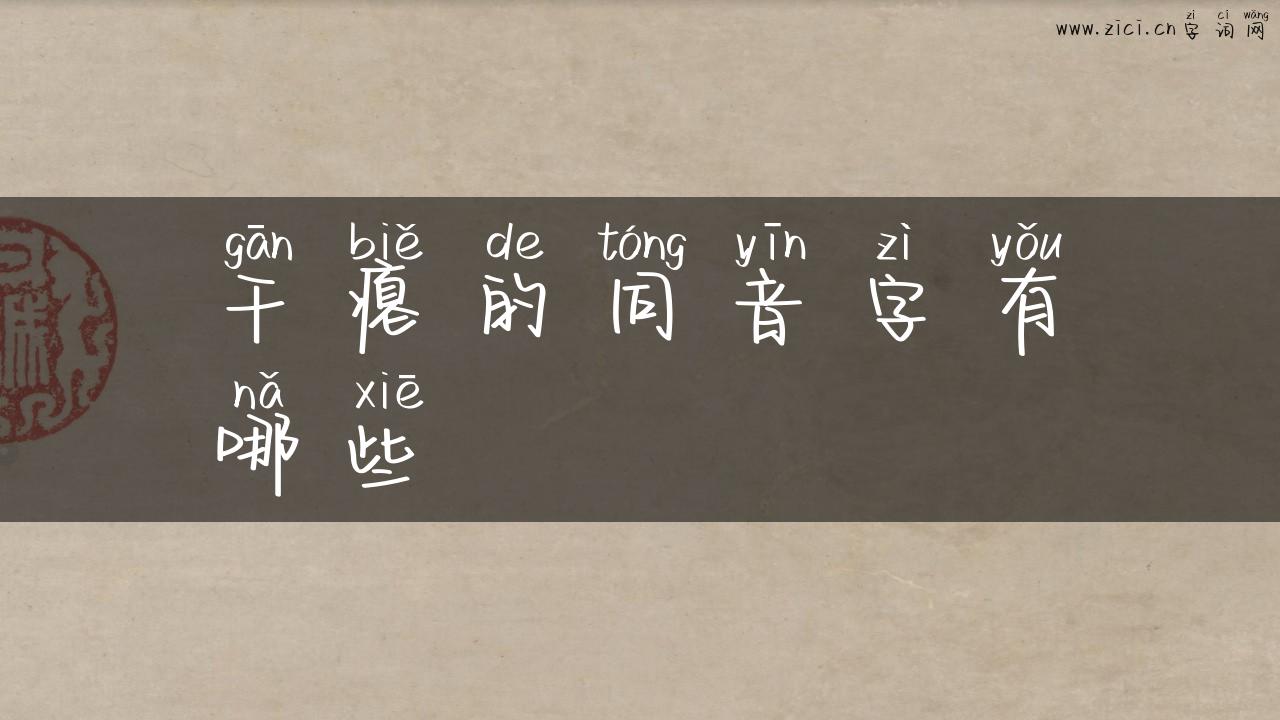 zì cí wǎng
www.zici.cn 字 词 网
gān biě de tóng yīn zì yǒu
干 瘪 的 同 音 字 有
nǎ xiē
哪 些